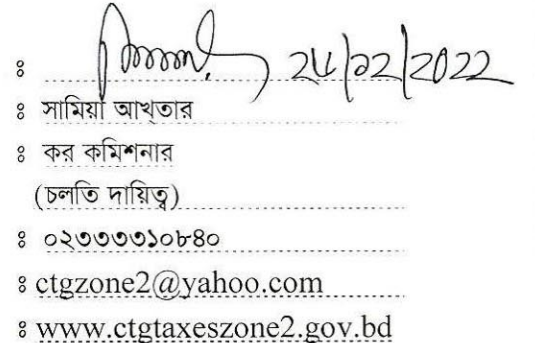 : ২৮/১২/২০২২
: সামিয়া আখ্তার
: কর কমিশনার
(চলতি দায়িত্ব)
: ০২৩৩৩৩১০৮৪০
: ctgzone2@yahoo.com
: www.ctgtaxeszone2.gov.bd